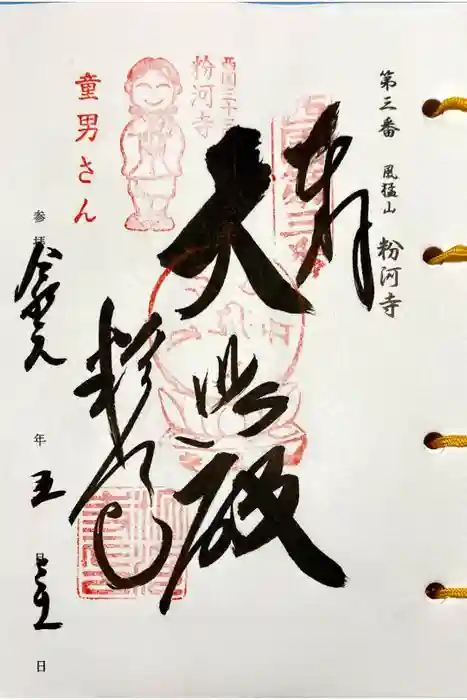 第三番 風猛山 粉河寺
奉拝
大悲殿
粉河寺
西国三十三
粉河寺
童男さん
参拝 令和元年五月 日